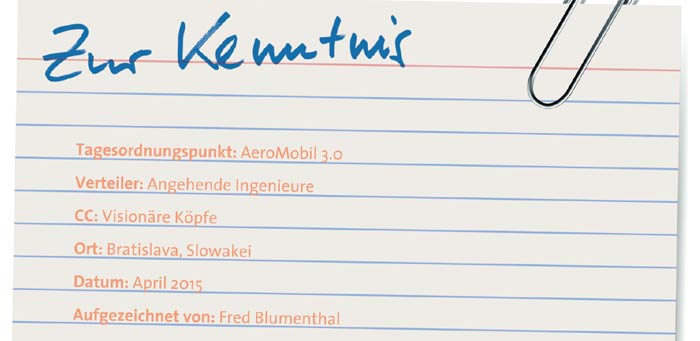 Zur Kenntnis
Tagesordnungspunkt: AeroMobil 3.0
Verteiler: Angehende Ingenieure
CC: Visionäre Köpfe
Ort: Bratislava, Slowakei
Datum: April 2015
Aufgezeichnet von: Fred Blumenthal